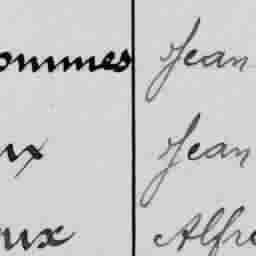 ommes Jean
ux Jean
ux Alfre